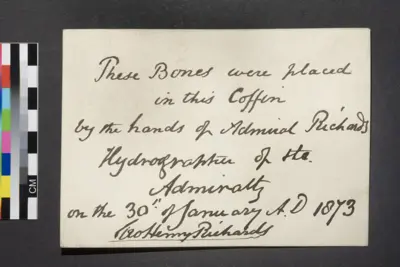 These Bones were placed
in this Coffin
by the hands of Admiral Richards
Hydrographer of the
Admiralty
on the 30" of January A.D 1873
Geo Henry Richards
CM